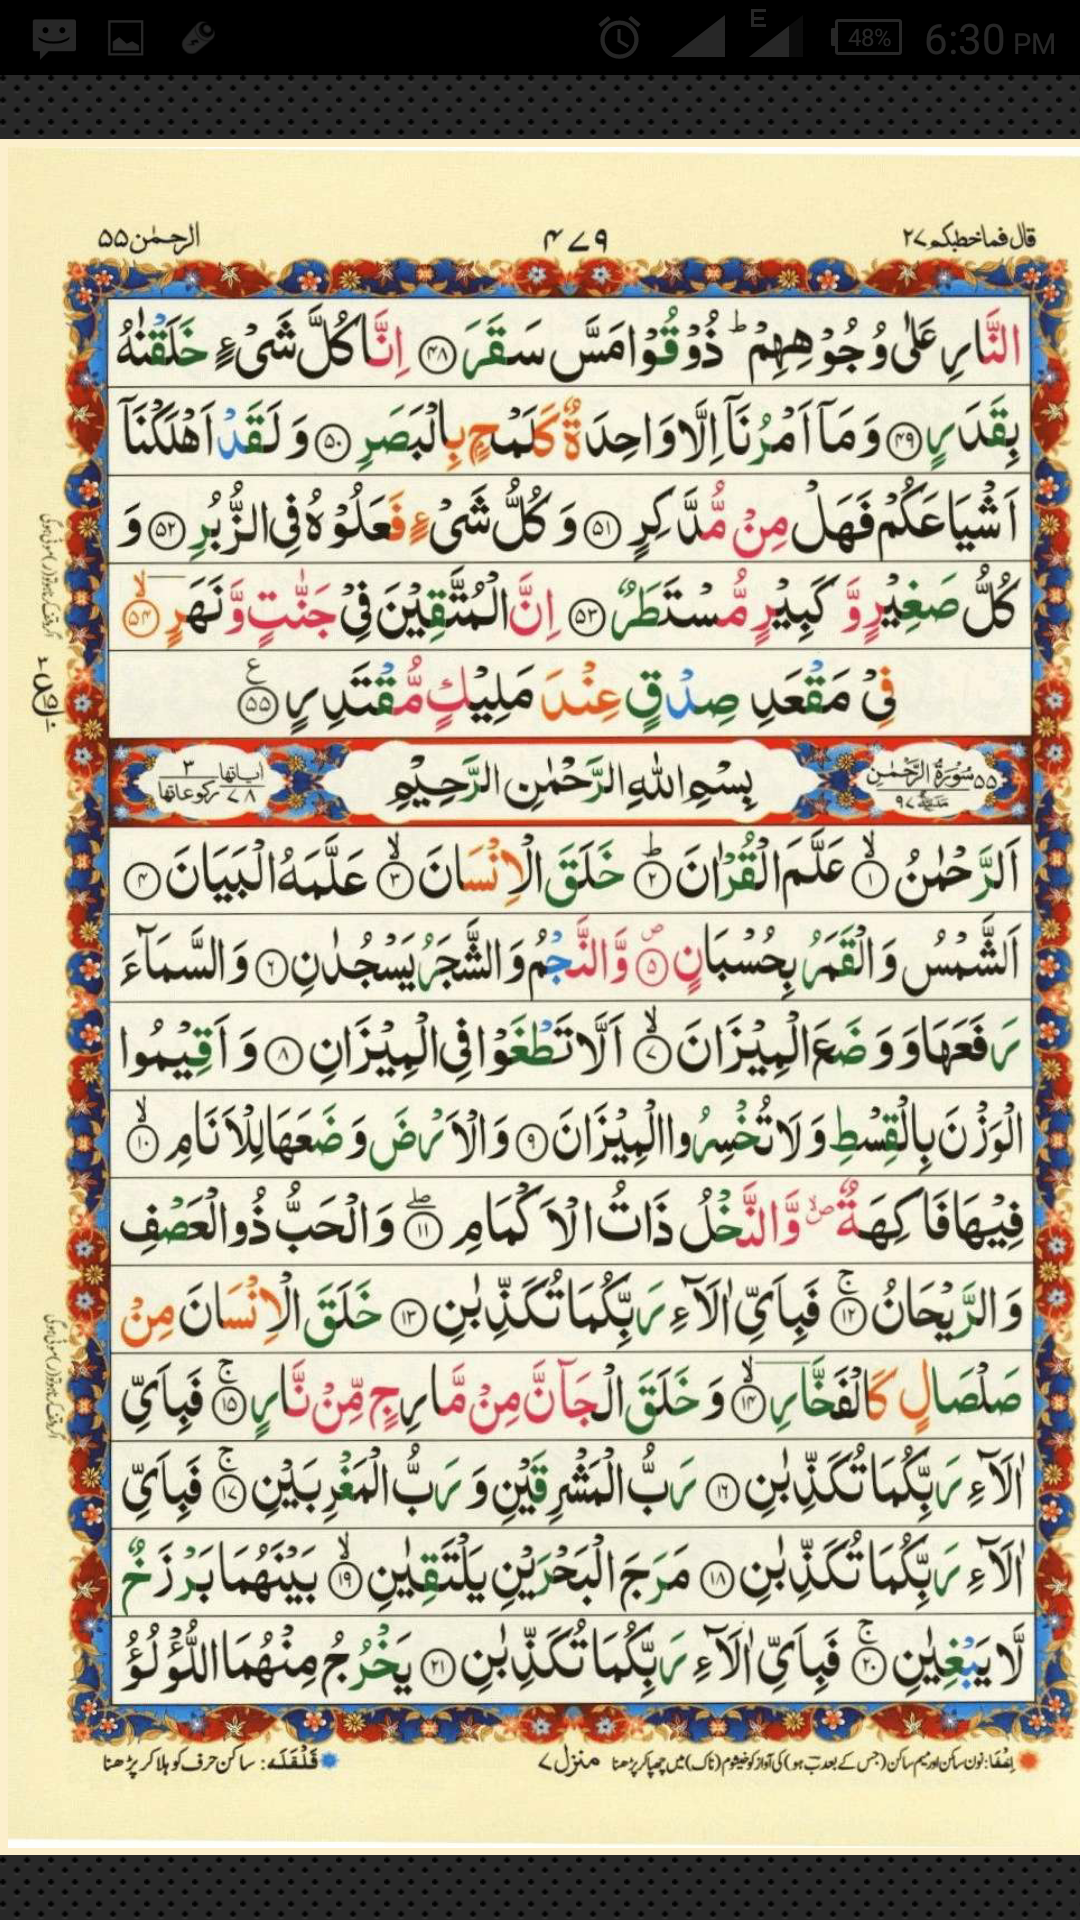 6:30 PM
48%
E
قال فما خطبكم ۲۷
۴۷۹
الرحمٰن ۵۵
النَّارِ عَلٰى وُجُوْهِهِمْ ؕ ذُوْقُوْا مَسَّ سَقَرَ ﴿۴۸﴾ اِنَّا كُلَّ شَیْءٍ خَلَقْنٰهُ
بِقَدَرٍ ﴿۴۹﴾ وَ مَاۤ اَمْرُنَاۤ اِلَّا وَاحِدَةٌ كَلَمْحٍۭ بِالْبَصَرِ ﴿۵۰﴾ وَ لَقَدْ اَهْلَكْنَاۤ
اَشْیَاعَكُمْ فَهَلْ مِنْ مُّدَّكِرٍ ﴿۵۱﴾ وَ كُلُّ شَیْءٍ فَعَلُوْهُ فِی الزُّبُرِ ﴿۵۲﴾ وَ
كُلُّ صَغِیْرٍ وَّ كَبِیْرٍ مُّسْتَطَرٌ ﴿۵۳﴾ اِنَّ الْمُتَّقِیْنَ فِیْ جَنّٰتٍ وَّ نَهَرٍ ﴿ۙ۵۴﴾
فِیْ مَقْعَدِ صِدْقٍ عِنْدَ مَلِیْكٍ مُّقْتَدِرٍ ﴿۵۵﴾ ع
۵۵ سُوْرَةُ الرَّحْمٰنِ مَدَنِیَّةٌ ۹۷
بِسْمِ اللّٰهِ الرَّحْمٰنِ الرَّحِیْمِ
اٰیاتها ۷۸ ركوعاتها ۳
اَلرَّحْمٰنُ ﴿ۙ۱﴾ عَلَّمَ الْقُرْاٰنَ ﴿ؕ۲﴾ خَلَقَ الْاِنْسَانَ ﴿ۙ۳﴾ عَلَّمَهُ الْبَیَانَ ﴿۴﴾
اَلشَّمْسُ وَ الْقَمَرُ بِحُسْبَانٍ ﴿۪۵﴾ وَّ النَّجْمُ وَ الشَّجَرُ یَسْجُدٰنِ ﴿۶﴾ وَ السَّمَآءَ
رَفَعَهَا وَ وَضَعَ الْمِیْزَانَ ﴿ۙ۷﴾ اَلَّا تَطْغَوْا فِی الْمِیْزَانِ ﴿۸﴾ وَ اَقِیْمُوا
الْوَزْنَ بِالْقِسْطِ وَ لَا تُخْسِرُوا الْمِیْزَانَ ﴿۹﴾ وَ الْاَرْضَ وَضَعَهَا لِلْاَنَامِ ﴿ۙ۱۰﴾
فِیْهَا فَاكِهَةٌ ۪ۙ وَّ النَّخْلُ ذَاتُ الْاَكْمَامِ ﴿ۖ۱۱﴾ وَ الْحَبُّ ذُو الْعَصْفِ
وَ الرَّیْحَانُ ﴿ۚ۱۲﴾ فَبِاَیِّ اٰلَآءِ رَبِّكُمَا تُكَذِّبٰنِ ﴿۱۳﴾ خَلَقَ الْاِنْسَانَ مِنْ
صَلْصَالٍ كَالْفَخَّارِ ﴿ۙ۱۴﴾ وَ خَلَقَ الْجَآنَّ مِنْ مَّارِجٍ مِّنْ نَّارٍ ﴿ۚ۱۵﴾ فَبِاَیِّ
اٰلَآءِ رَبِّكُمَا تُكَذِّبٰنِ ﴿۱۶﴾ رَبُّ الْمَشْرِقَیْنِ وَ رَبُّ الْمَغْرِبَیْنِ ﴿ۚ۱۷﴾ فَبِاَیِّ
اٰلَآءِ رَبِّكُمَا تُكَذِّبٰنِ ﴿۱۸﴾ مَرَجَ الْبَحْرَیْنِ یَلْتَقِیٰنِ ﴿ۙ۱۹﴾ بَیْنَهُمَا بَرْزَخٌ
لَّا یَبْغِیٰنِ ﴿ۚ۲۰﴾ فَبِاَیِّ اٰلَآءِ رَبِّكُمَا تُكَذِّبٰنِ ﴿۲۱﴾ یَخْرُجُ مِنْهُمَا اللُّؤْلُؤُ
اِخفَا: نون ساکن اور میم ساکن (جس کے بعد ب ہو) کی آواز کو خیشوم (ناک) میں چھپا کر پڑھنا
منزل ۷
قَلْقَلَه: ساکن حرف کو ہلا کر پڑھنا